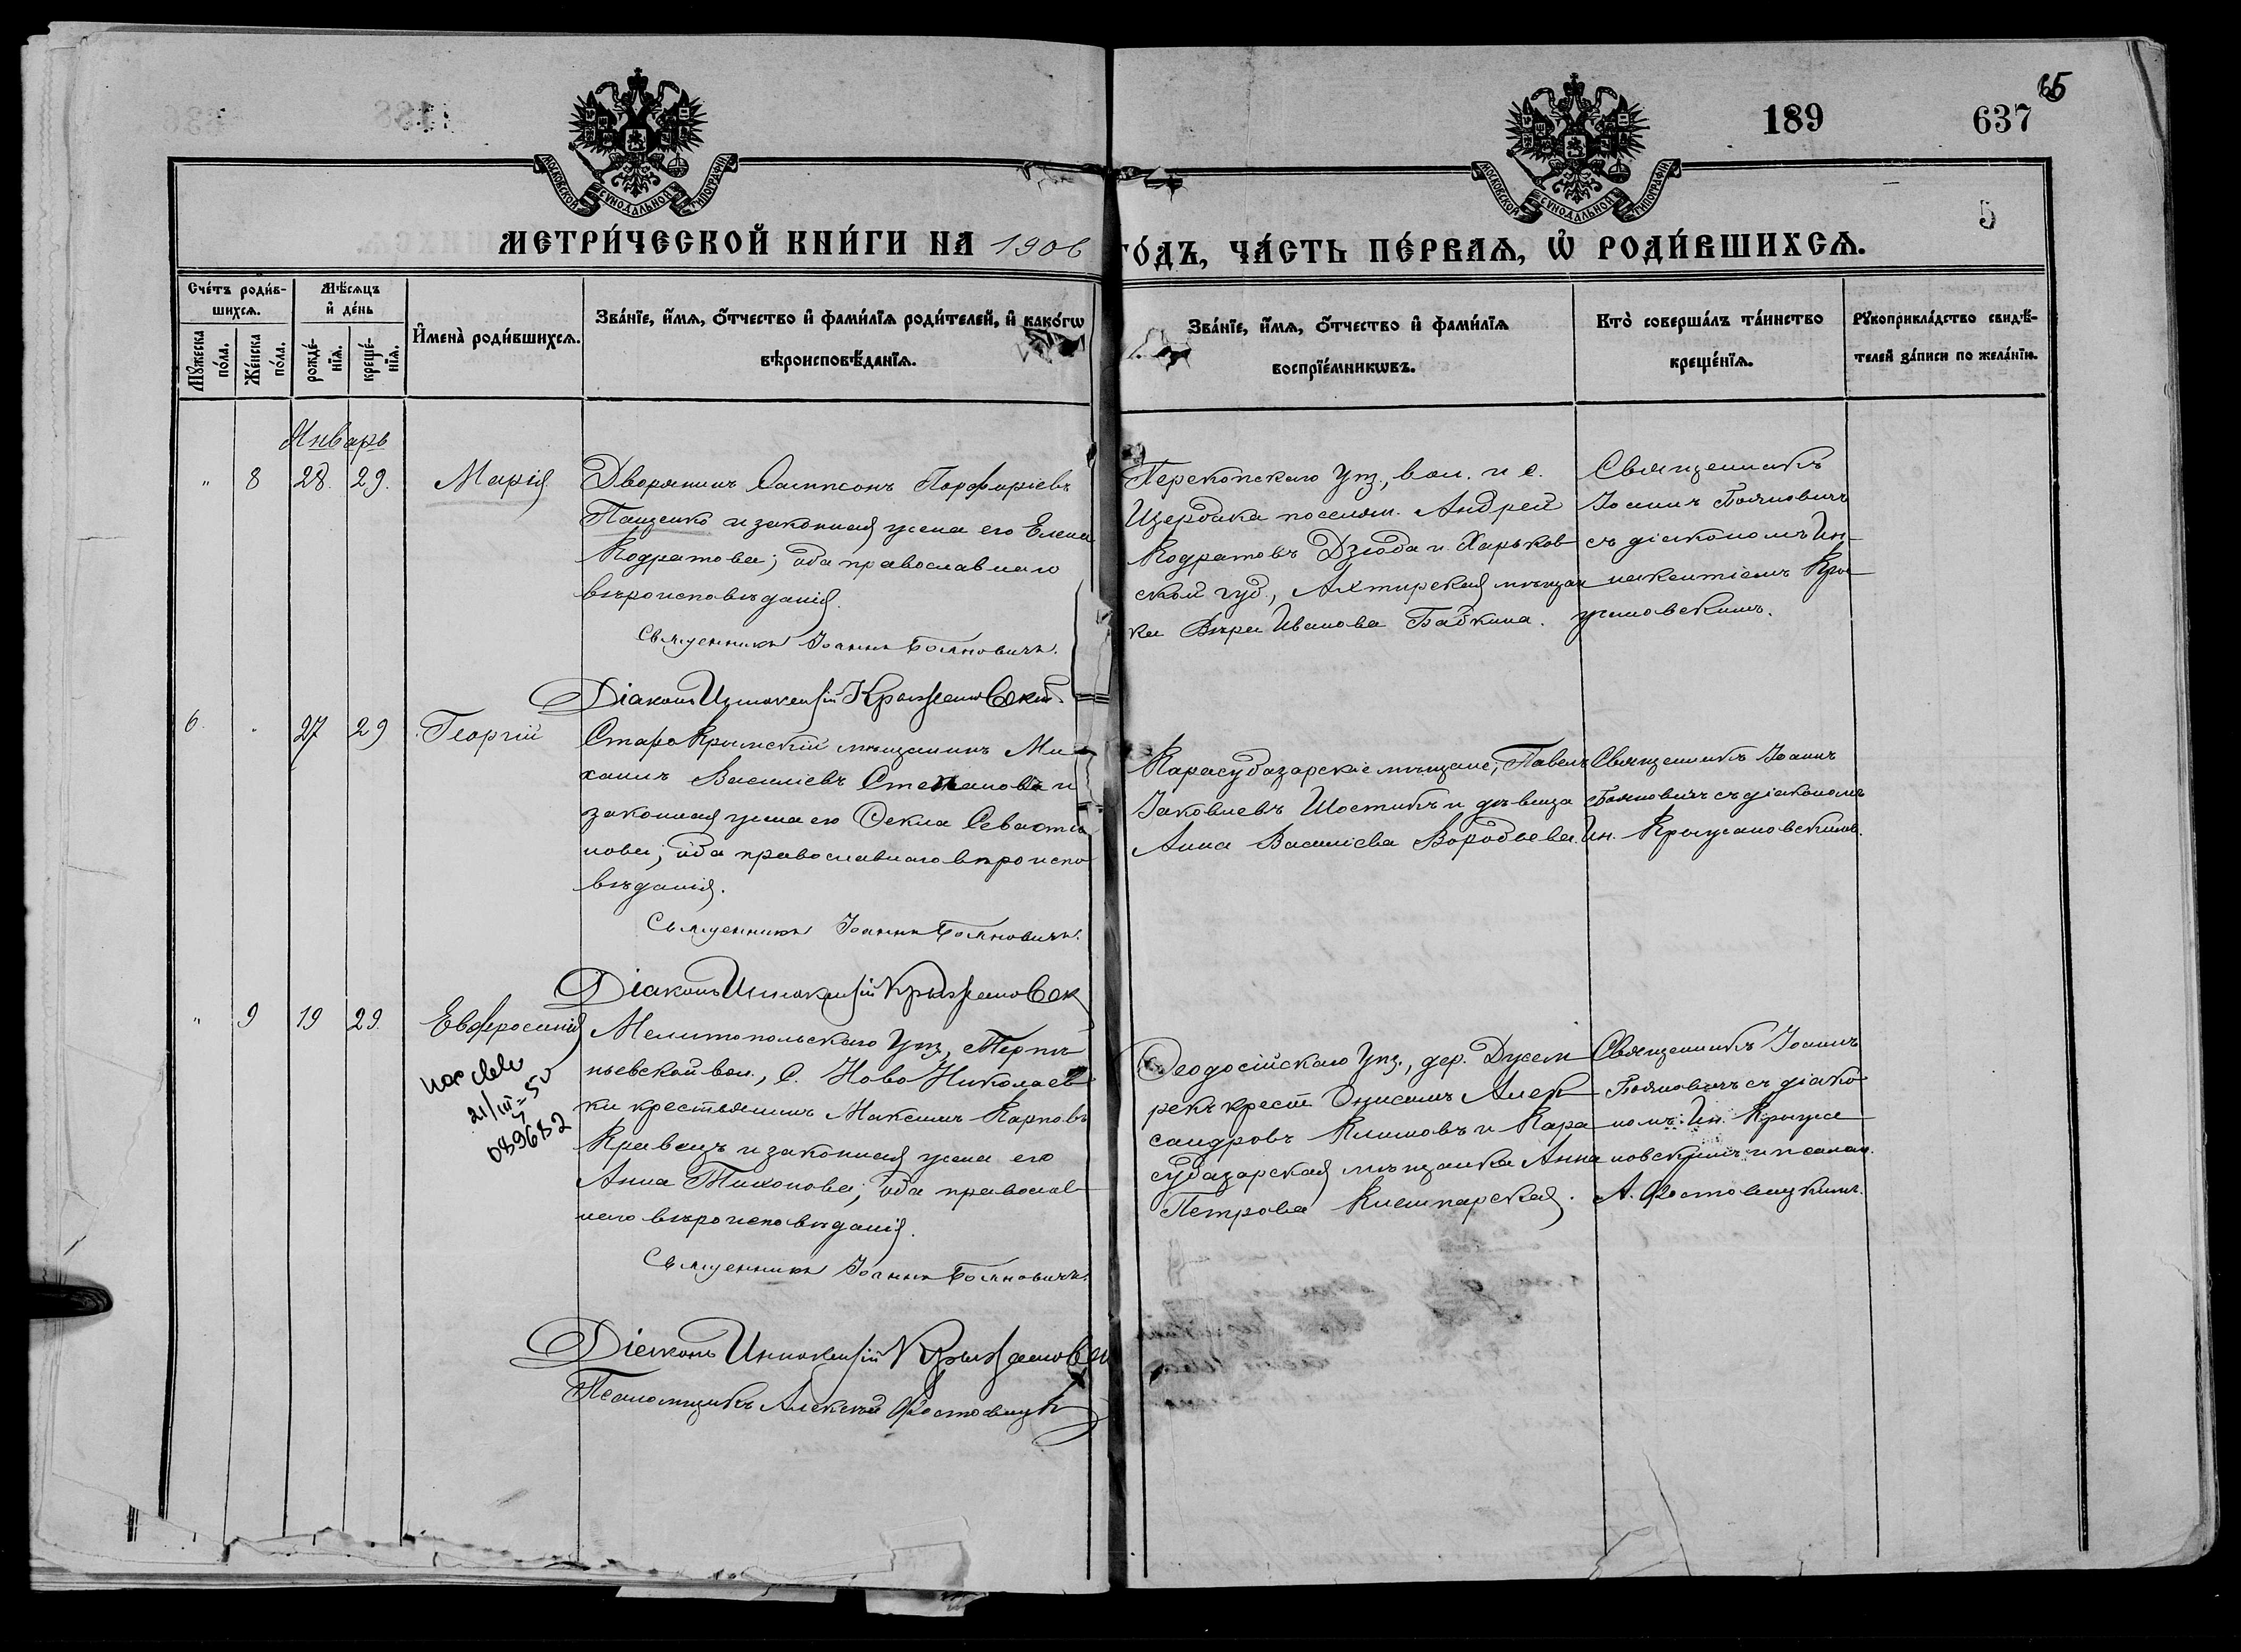 65
189
637
5
МОСКОВСКОЙ СѴНОДАЛЬНОЙ ТИПОГРАФІИ
МОСКОВСКОЙ СѴНОДАЛЬНОЙ ТИПОГРАФІИ
МЕТРИ́ЧЕСКОЙ КНИ́ГИ НА 1906
ГО́ДЪ, ЧА́СТЬ ПЕ́РВАѦ, Ѡ҆ РОДИ́ВШИХСѦ.
Сче́тъ роди́в-
шихсѧ.
Мꙋ́жеска по́ла.
Же́нска по́ла.
Мѣ́сѧцъ
и҆ де́нь
рожде́-
нїѧ.
креще́-
нїѧ.
И҆мена̀ роди́вшихсѧ.
Зва́нїе, и҆́мѧ, ѻ҆́тчество и҆ фами́лїѧ роди́телей, и҆ како́гѡ
вѣроисповѣ́данїѧ.
Зва́нїе, и҆́мѧ, ѻ҆́тчество и҆ фами́лїѧ
воспрїе́мникѡвъ.
Кто̀ соверша́лъ та́инство
креще́нїѧ.
Рꙋкоприкла́дство свидѣ́-
телей за́писи по жела́нїю.
Январь
" 8 28. 29. Марія
Дворянинъ Сампсонъ Порфиріевъ
Пащенко и законная жена его Елена
Кодратова; оба православнаго
вѣроисповѣданія.
Священникъ Іоаннъ Бояновичъ.
Діаконъ Иннокентій Крыжановскій.
Перекопскаго уѣз., вол. и с.
Щербака поселян. Андрей
Кодратовъ Дзюба и Харьков
ской губ., Ахтирская мѣщан
ка Вѣра Иванова Бабкина.
Священникъ
Іоаннъ Бояновичъ
съ діакономъ Ин-
нокентіемъ Кры-
жановскимъ.
6. " 27 29 Георгій
Старо Крымскій мѣщанинъ Ми-
хаилъ Василіевъ Степановъ и
законная жена его Ѳекла Севастіа
нова; оба православнаго вѣроиспо
вѣданія.
Священникъ Іоаннъ Бояновичъ.
Діаконъ Иннокентій Крыжановск
Карасубазарскіе мѣщане, Павелъ
Іаковлевъ Шостикъ и дѣвица
Анна Василіева Воробьева.
Священникъ Іоаннъ
Бояновичъ съ діакономъ
Ин. Крыжановскимъ.
" 9 19 29. Евфросинія
21/III-50
089682
Мелитопольскаго уѣз, Терпѣ-
ньевской вол., с. Ново Николаев
ки крестьянинъ Максимъ Карповъ
Кравецъ и законная жена его
Анна Тихонова; оба православ
наго вѣроисповѣданія.
Священникъ Іоаннъ Бояновичъ.
Діаконъ Иннокентій Крыжановск
Псаломщикъ Алексѣй
Ѳеодосійскаго уѣз., дер. Джем
рекъ крест. Онисимъ Алек
сандровъ Климовъ и Кара
субазарская мѣщанка Анна
Петрова
Священникъ Іоаннъ
Бояновичъ съ діако
номъ Ин. Крыжа
новскимъ и псалом.
А.